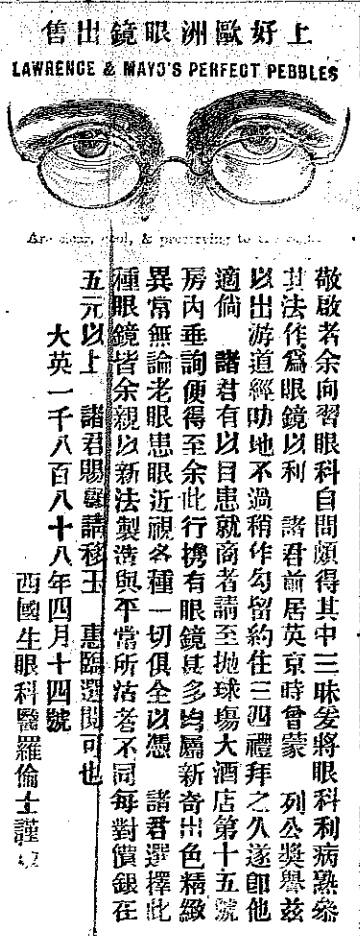 上好歐洲眼鏡出售
LAWRENCE & MAYO'S PERFECT PEBBLES
Are clear, cool, & preserving to
敬啟者余向習眼科自問頗得其中三昧爰將眼科利病熟參
其法作爲眼鏡以利 諸君前居英京時曾蒙 列公獎譽茲
以出游道經叻地不過稍作勾留約住三四禮拜之久遂卽他
適倘 諸君有以目患就商者請至拋球塲大酒店第十五號
房內垂詢便得至余此行擕有眼鏡甚多均屬新奇出色精緻
異常無論老眼患眼近視各種一切俱全以憑 諸君選擇此
種眼鏡皆余親以新法製造與平常所沽者不同每對價銀在
五元以上 諸君賜顧請移玉 惠臨選閱可也
大英一千八百八十八年四月十四號
西國生眼科醫羅倫士謹